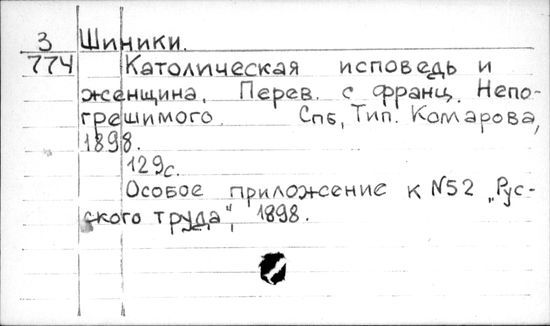 3 Шиники.
774 Католическая исповедь и
женщина. Перев. с франц. Непо-
грешимого. Спб, Тип. Комарова,
1898.
129с.
Особое приложение к №52 „Рус-
ского труда", 1898.